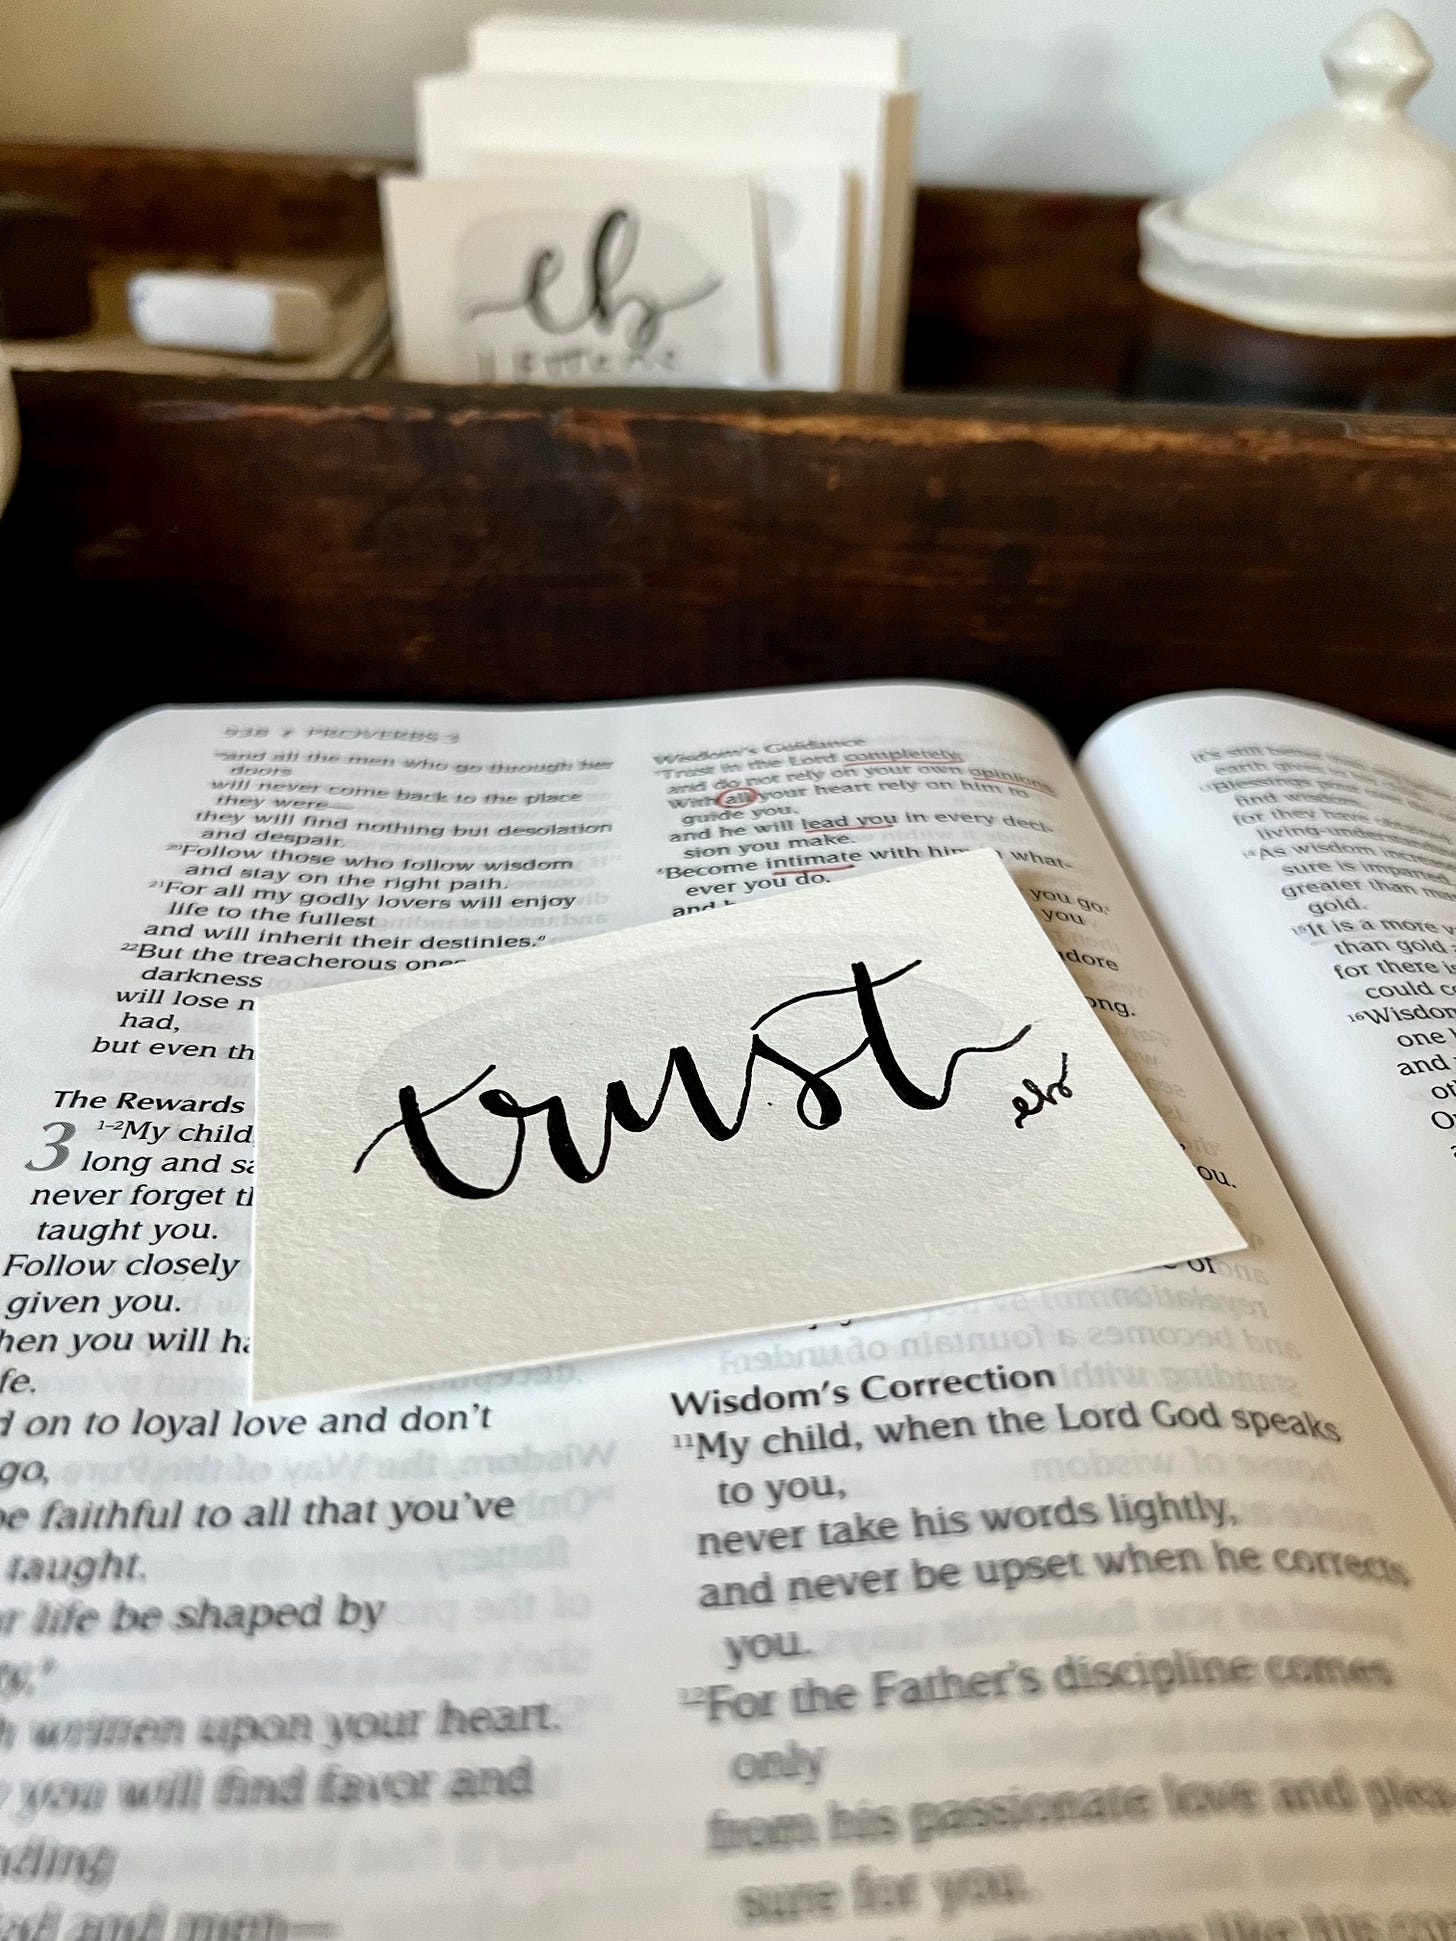 eb
LETTERC
938 PROVERBS 3
and all the men who go through her
doors
will never come back to the place
they were—
they will find nothing but desolation
and despair.
20Follow those who follow wisdom
and stay on the right path.
21For all my godly lovers will enjoy
life to the fullest
and will inherit their destinies.
22But the treacherous ones
darkness
will lose
had,
but even
The Rewards
3 1–2My child,
long and
never forget
taught you.
Follow closely
given you.
you will
on to loyal love and don't
go,
faithful to all that you've
taught.
life be shaped by
written upon your heart.
you will find favor and
and men—
Wisdom's Guidance
Trust in the Lord completely,
and do not rely on your own opinions.
With all your heart rely on him to
guide you,
and he will lead you in every deci-
sion you make.
6Become intimate with him in what-
ever you do,
you go.
you
adore
you.
of
trust
eb
Wisdom's Correction
11My child, when the Lord God speaks
to you,
never take his words lightly,
and never be upset when he corrects
you.
12For the Father's discipline comes
only
from his passionate love and plea-
sure for you.
It's still better
earth gives
Blessings pour
find wisdom,
for they have obtained
living-understanding
14As wisdom increases
sure is imparted
greater than
gold.
15It is a more
than gold
for there is
could
16Wisdom
one
and